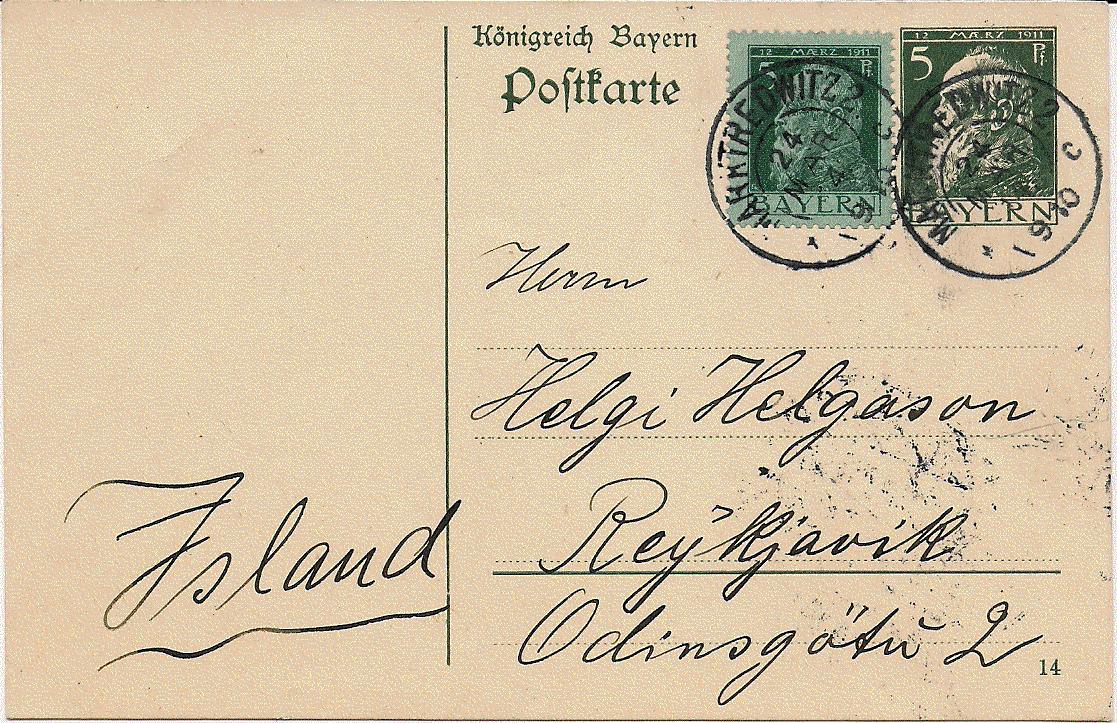 Königreich Bayern
Postkarte
12 MÆRZ 1911
5 Pf.
BAYERN
12 MÆRZ 1911
5 Pf.
BAYERN
MARKTREDWITZ 2
24 MAR.
MARKTREDWITZ 2
24
Herrn
Helgi Helgason
Reÿkjavik
Odinsgötŭ 2
Island
14